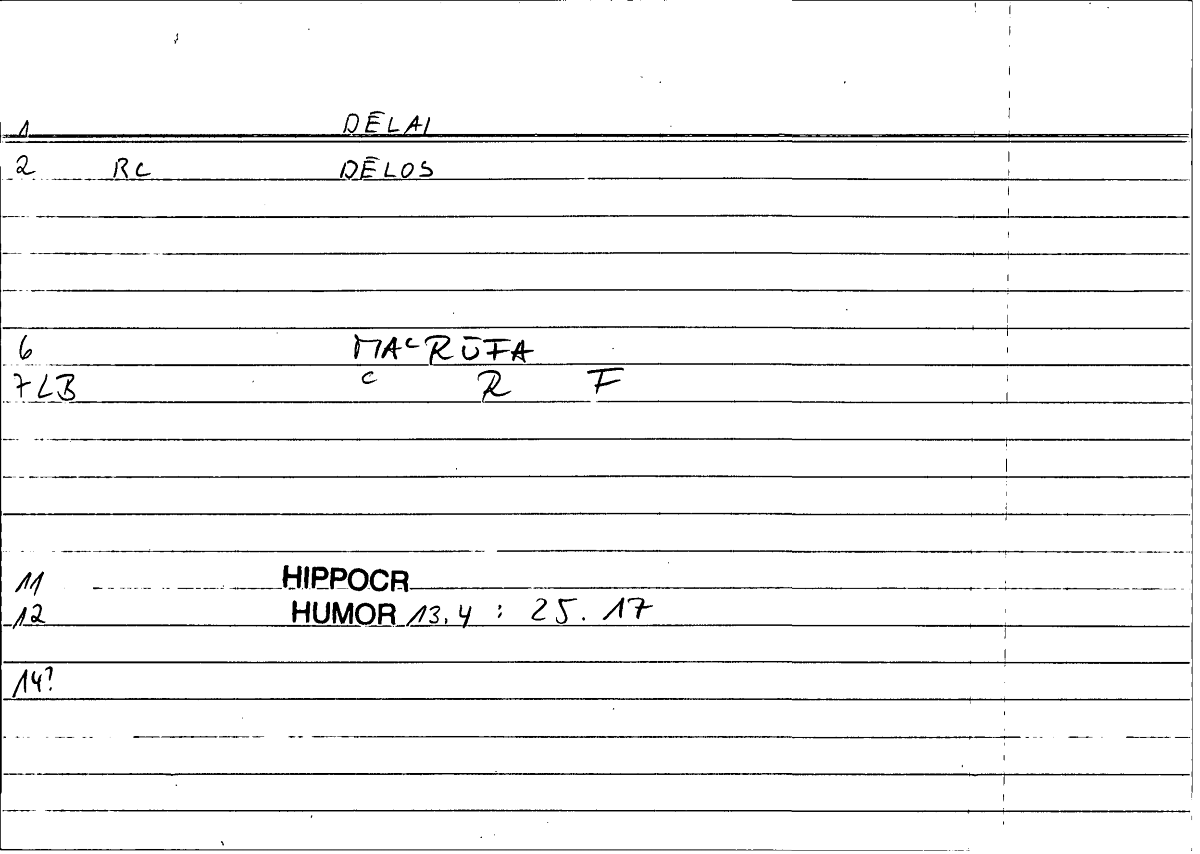 1 DĒLAI
2 RC DĒLOS
6 MAᶜRŪFA
7 LB C R F
11 HIPPOCR
12 HUMOR 13.4 : 25.17
14?